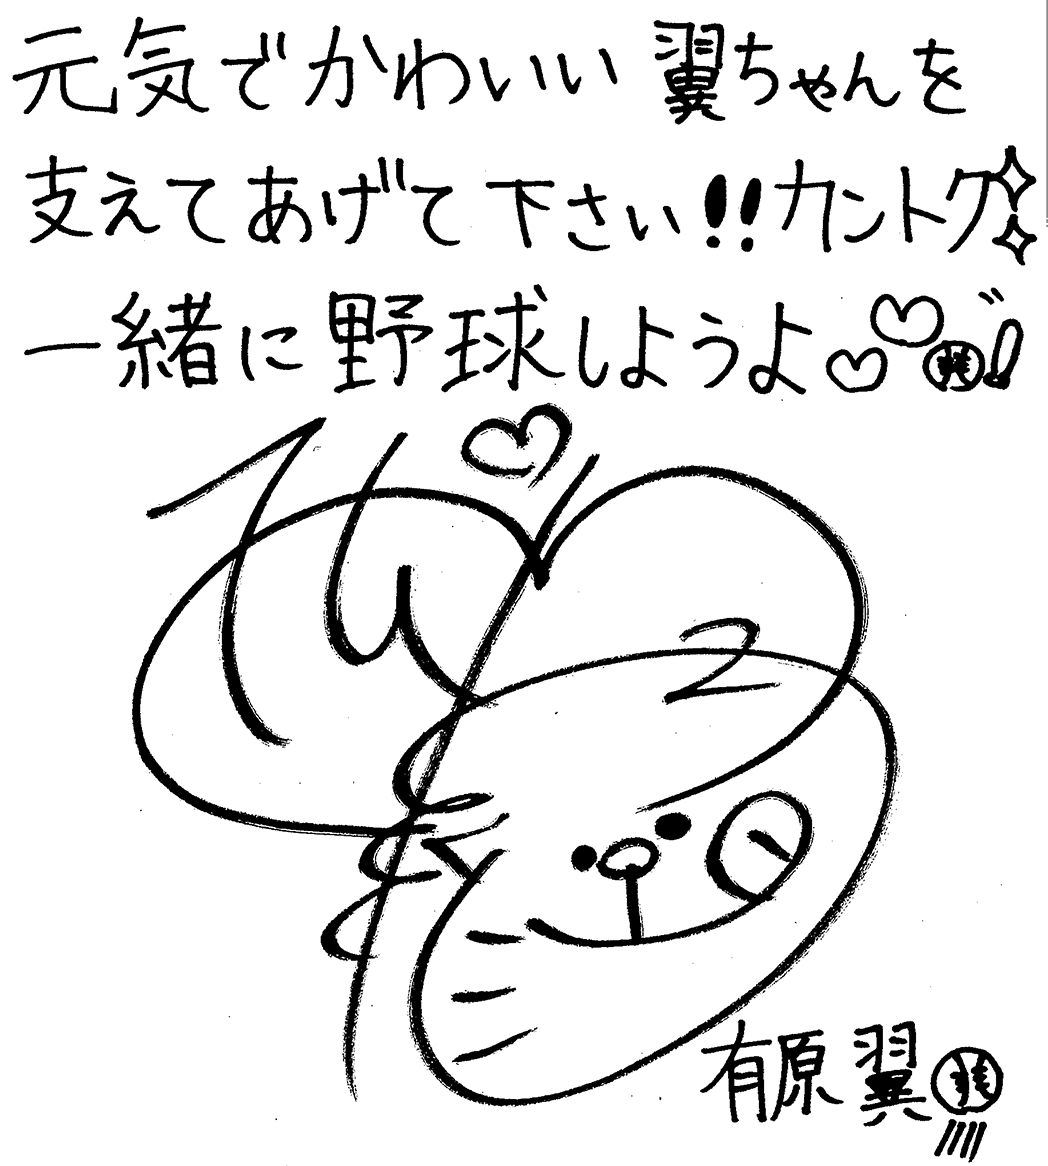 元気でかわいい翼ちゃんを
支えてあげて下さい!!カントク
一緒に野球しようよ!
有原翼